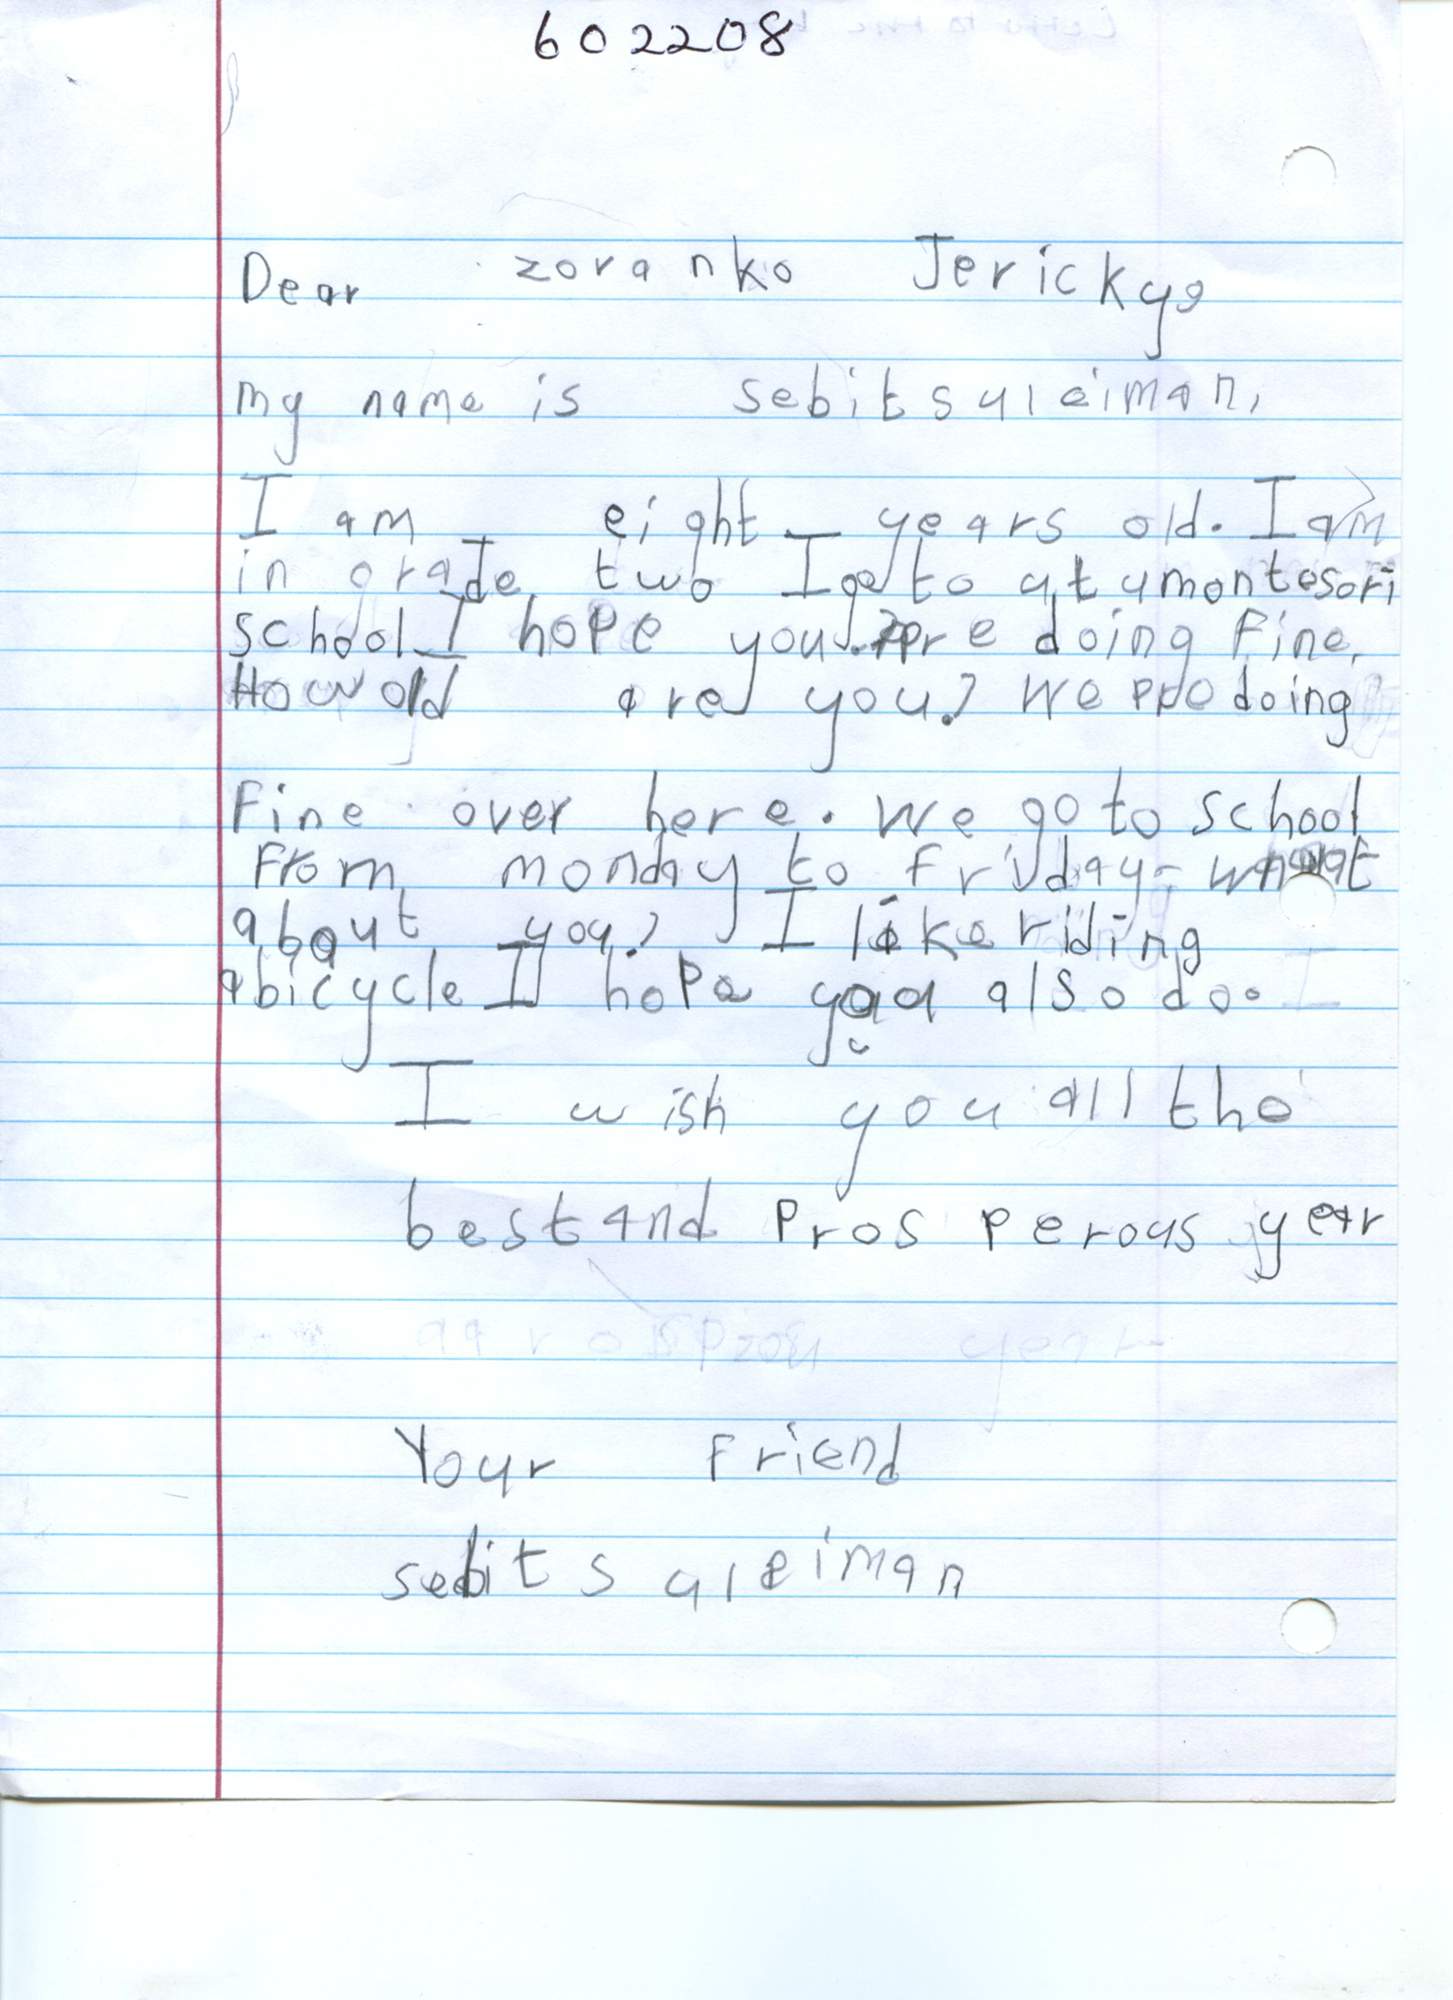 602208
Dear zoranko Jerickyo
my name is sebit suleiman,
I am eight years old. I am
in grade two I go to at a montesori
school I hope you are doing Fine.
How old are you? We are doing
Fine over here. We go to school
From monday to Friday- what
about you? I like riding
a bicycle I hope you also do.
I wish you all the
best and Prosperous year
Your Friend
sebit suleiman